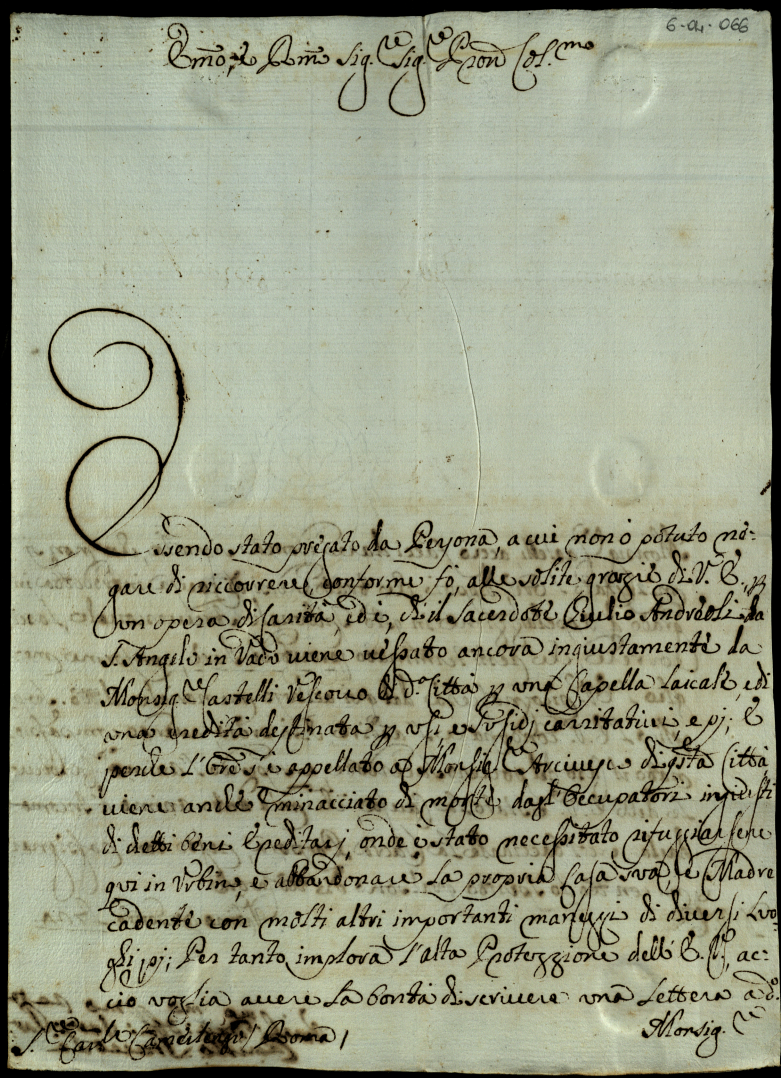 6-04-066
Emo, e Rmo Sig.re Sig.re Pron Col.mo
Essendo stato pregato da Persona, a cui non ò potuto ne=
gare di riccorrere, conforme fò, alle solite grazie di V. E., p
un opera di Carità, ed è, che il Sacerdote Giulio Andreoli da
S. Angelo in Vado viene vessato ancora ingiustamente da
Monsig.re Castelli Vescovo di d.a Città p una Capella laicale, e di
una eredità destinata p usi, e susidj carritativi, e pj; E
perche l'Ore s'è appellato a Monsig.re Arcivesc.o di qsta Città
viene anche minacciato di morte dagl'Occupatori ingiusti
di detti beni Ereditarj, onde è stato necessitato rifuggiarsene
qui in Urbino, e abbandonare la propria Casa sua, e Madre
cadente con molti altri importanti maneggi di diversi Luo-
ghi pj; Per tanto implora l'alta Protezzione dell'E. V., ac=
ciò voglia avere la bontà di scrivere una lettera a d.o
Monsig.re
S.re Card.le Camerlengo / Roma /